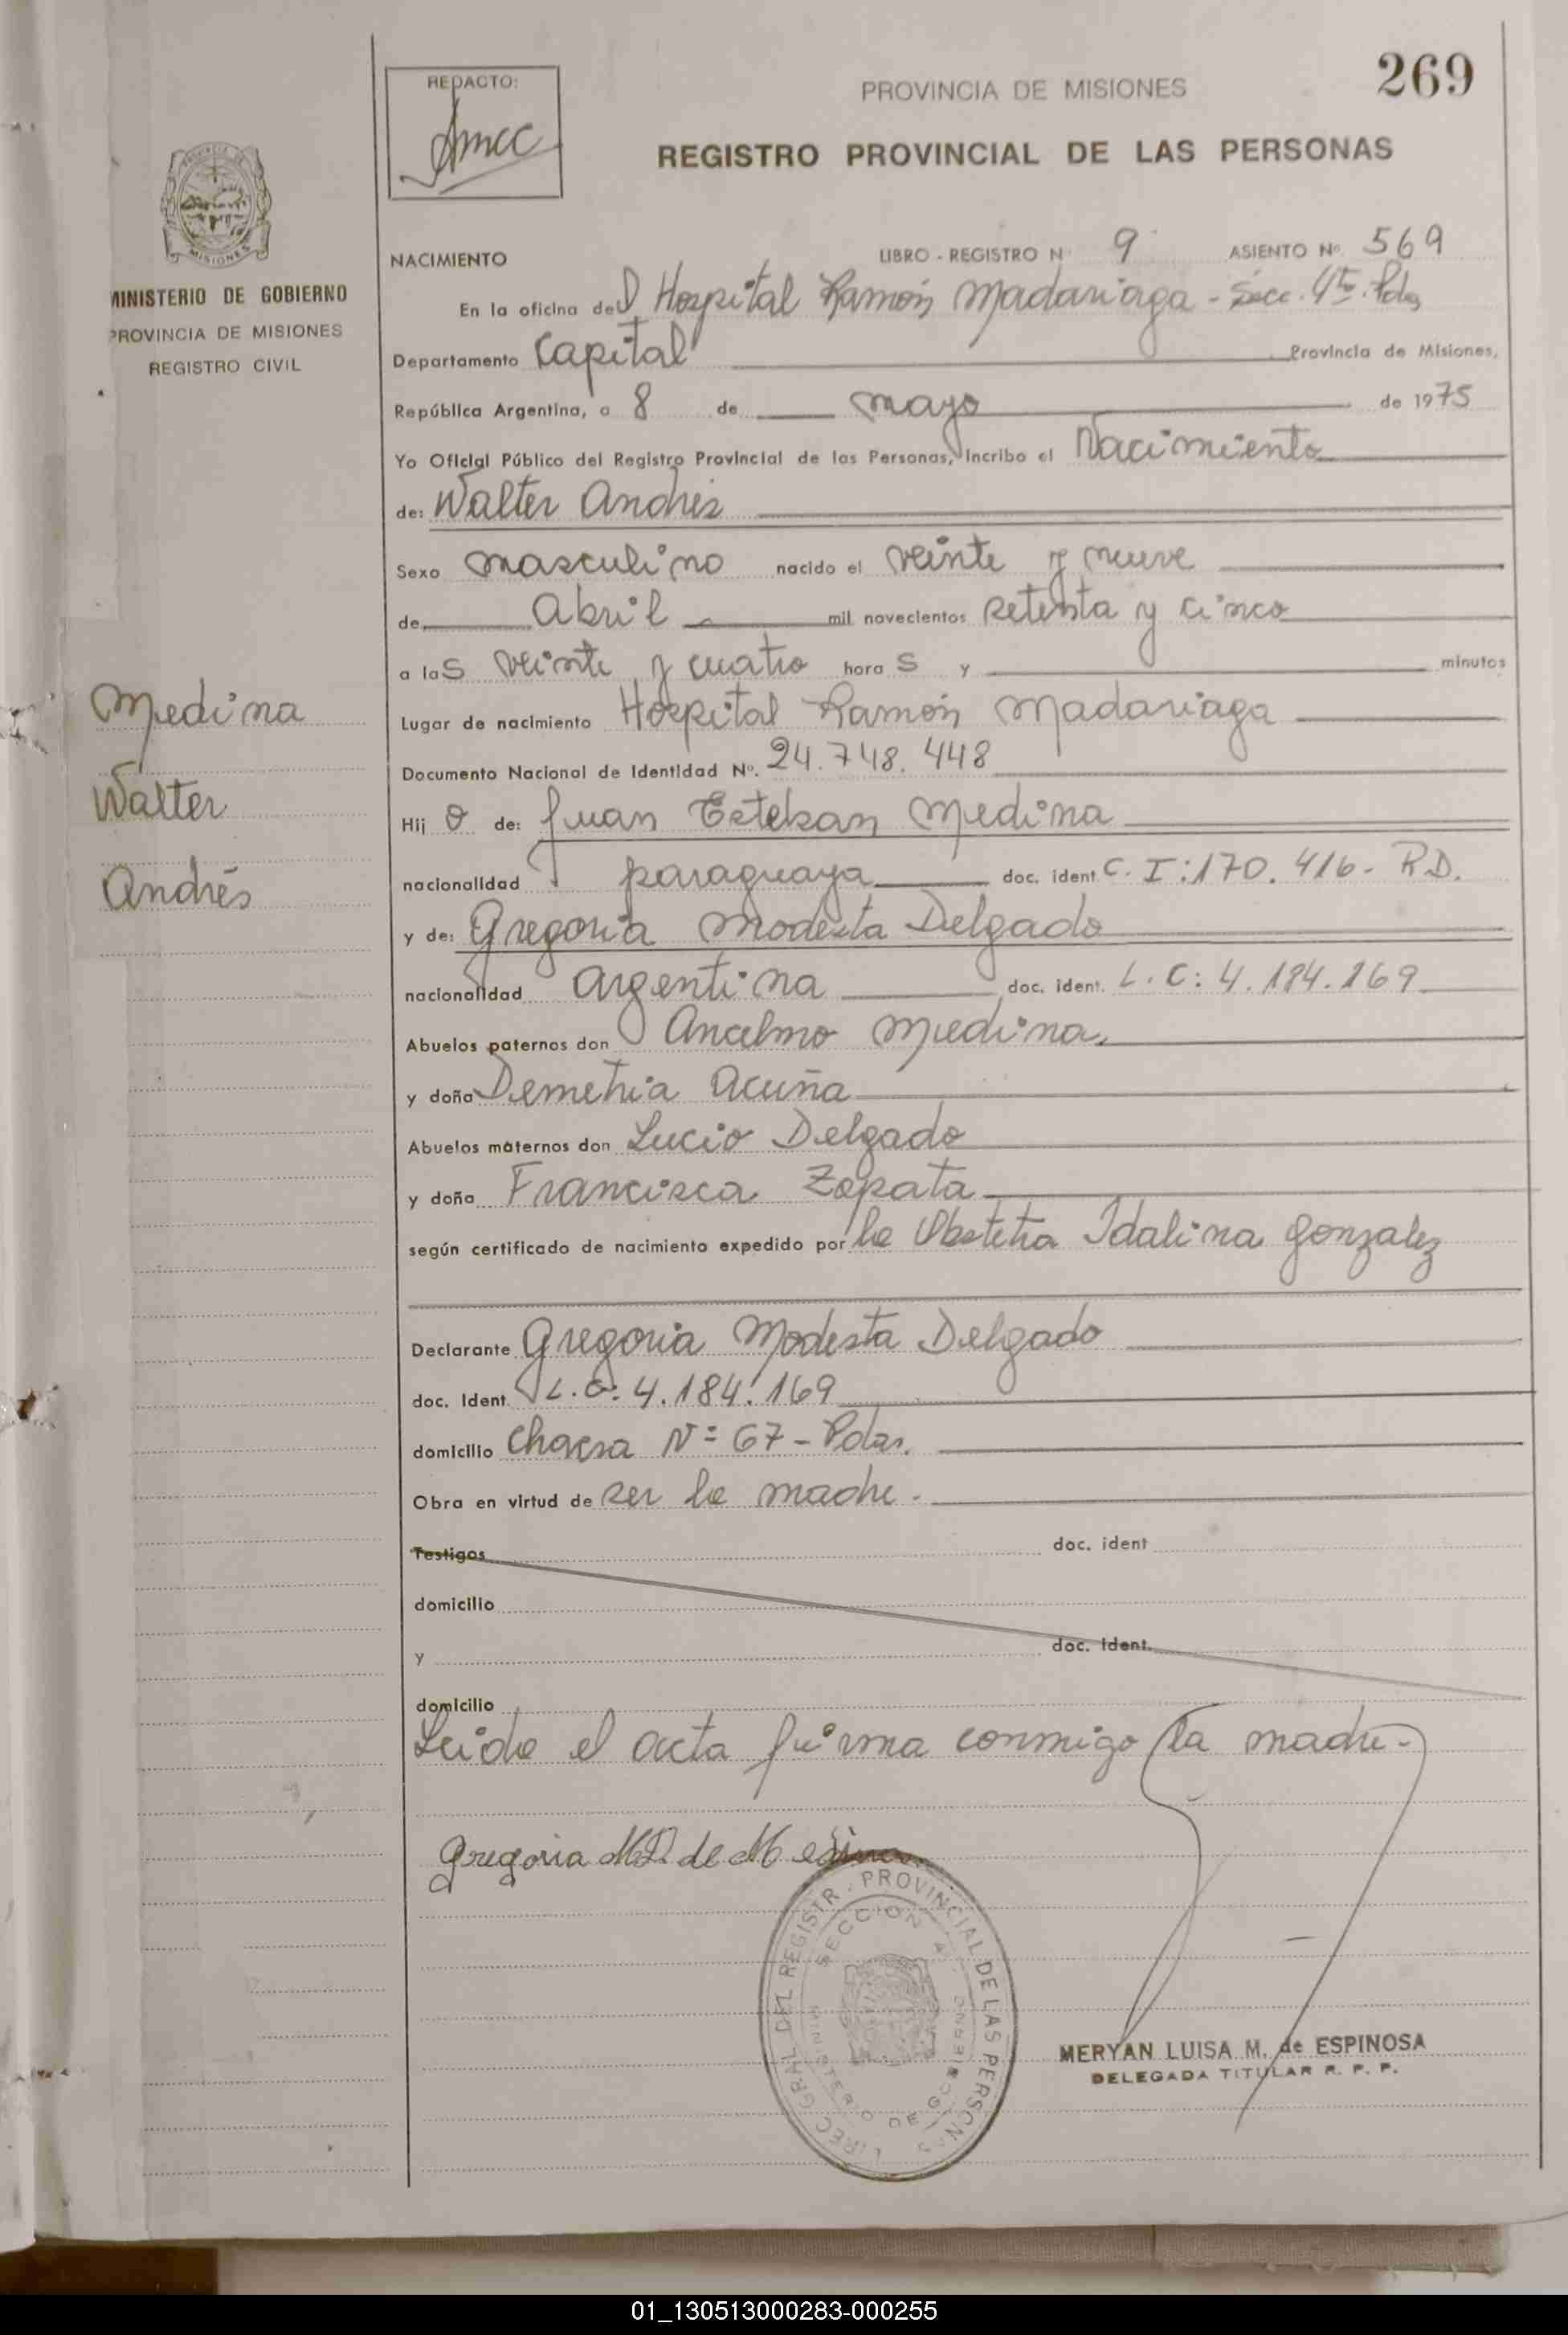 269
REDACTO:
PROVINCIA DE MISIONES
REGISTRO PROVINCIAL DE LAS PERSONAS
MISIONES
MINISTERIO DE GOBIERNO
PROVINCIA DE MISIONES
REGISTRO CIVIL
NACIMIENTO LIBRO - REGISTRO N° 9 ASIENTO N° 569
En la oficina del Hospital Ramón Madariaga - Secc. 4ta. Pdas
Departamento Capital Provincia de Misiones,
República Argentina, a 8 de mayo de 1975
Yo Oficial Público del Registro Provincial de las Personas, incribo el Nacimiento
de: Walter Andrés
Sexo masculino nacido el veinte y nueve
de Abril mil novecientos setenta y cinco
a las veinte y cuatro horas y minutos
Medina
Lugar de nacimiento Hospital Ramón Madariaga
Documento Nacional de Identidad N°. 24.748.448
Walter
Hijo de: Juan Esteban Medina
Andrés
nacionalidad paraguaya doc. ident. C. I: 170.416- RD.
y de: Gregoria Modesta Delgado
nacionalidad argentina doc. ident. L.C: 4.184.169
Abuelos paternos don Ancelmo Medina
y doña Demetria Acuña
Abuelos maternos don Lucio Delgado
y doña Francisca Zapata
según certificado de nacimiento expedido por la Obstetra Idalina Gonzalez
Declarante Gregoria Modesta Delgado
doc. Ident. L.C: 4.184.169
domicilio Chacra N= 67 - Pdas.
Obra en virtud de ser la madre.
Testigos doc. ident
domicilio
y doc. ident.
domicilio
Leido el acta firma conmigo la madre-
Gregoria M D. de Medina
DIREC GRAL DEL REGISTR. PROVINCIAL DE LAS PERSONAS
SECCION 4
MINISTERIO DE GOBIERNO
MERYAN LUISA M. de ESPINOSA
DELEGADA TITULAR R. P. P.
01_130513000283-000255